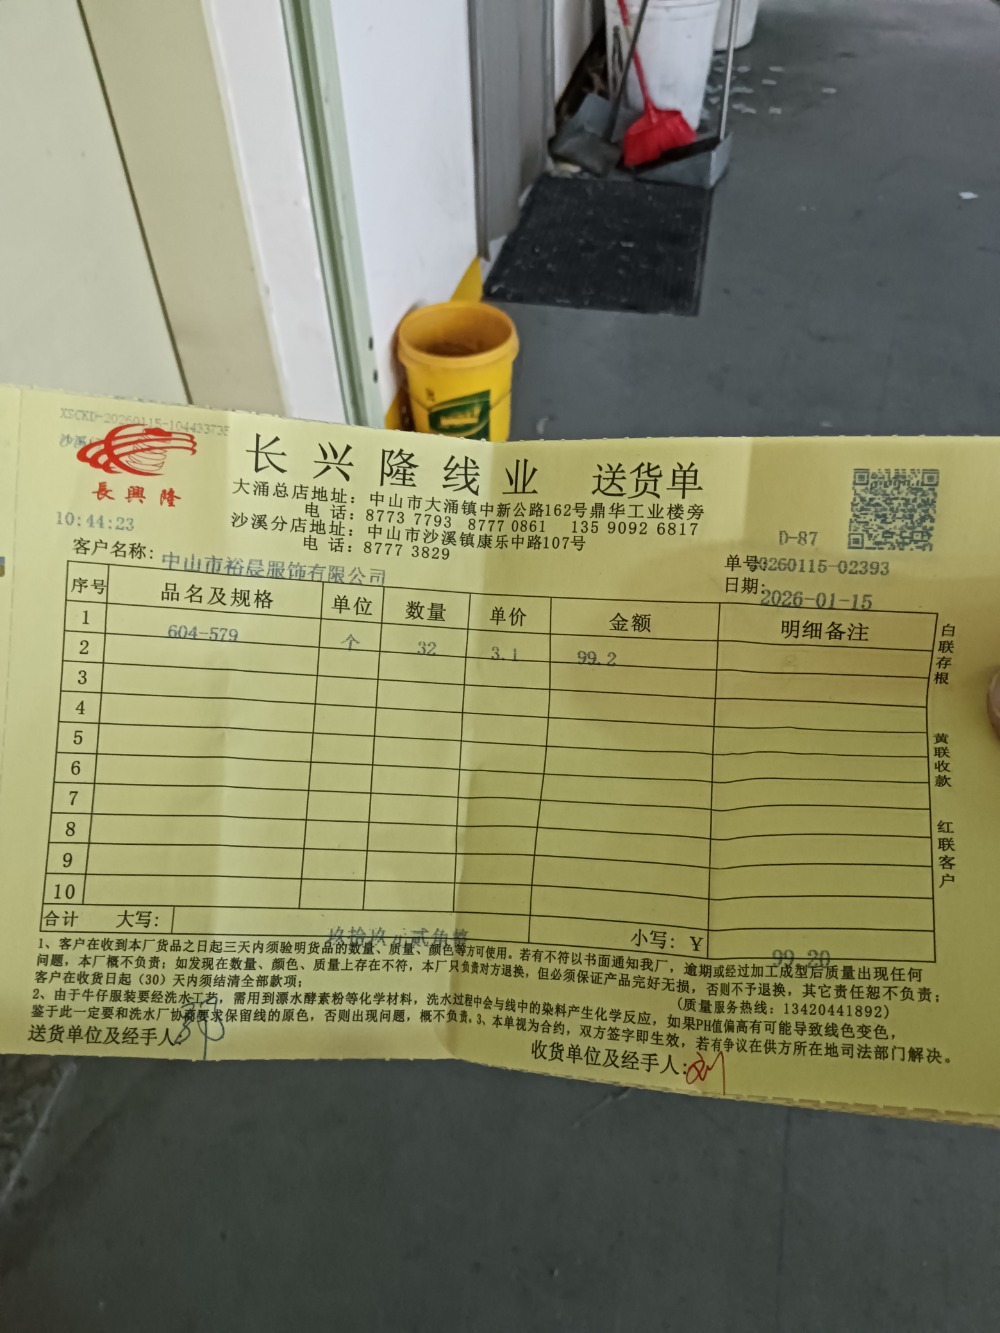 XSCKD-20260115-104433735
沙溪
長興隆
长兴隆线业 送货单
大涌总店地址：中山市大涌镇中新公路162号鼎华工业楼旁
电话：8773 7793 8777 0861 135 9092 6817
沙溪分店地址：中山市沙溪镇康乐中路107号
电话：8777 3829
10:44:23
D-87
客户名称：中山市裕晨服饰有限公司
单号：20260115-02393
日期：2026-01-15
序号 品名及规格 单位 数量 单价 金额 明细备注
1 604-579 个 32 3.1 99.2
2
3
4
5
6
7
8
9
10
合计 大写：玖拾玖元贰角整 小写：￥ 99.20
白联存根 黄联收款 红联客户
1、客户在收到本厂货品之日起三天内须验明货品的数量、质量、颜色等方可使用。若有不符以书面通知我厂，逾期或经过加工成型后质量出现任何
问题，本厂概不负责；如发现在数量、颜色、质量上存在不符，本厂只负责对方退换，但必须保证产品完好无损，否则不予退换，其它责任恕不负责；
客户在收货日起（30）天内须结清全部款项；
（质量服务热线：13420441892）
2、由于牛仔服装要经洗水工艺，需用到漂水酵素粉等化学材料，洗水过程中会与线中的染料产生化学反应，如果PH值偏高有可能导致线色变色，
鉴于此一定要和洗水厂协商要求保留线的原色，否则出现问题，概不负责。3、本单视为合约，双方签字即生效，若有争议在供方所在地司法部门解决。
送货单位及经手人：
收货单位及经手人：